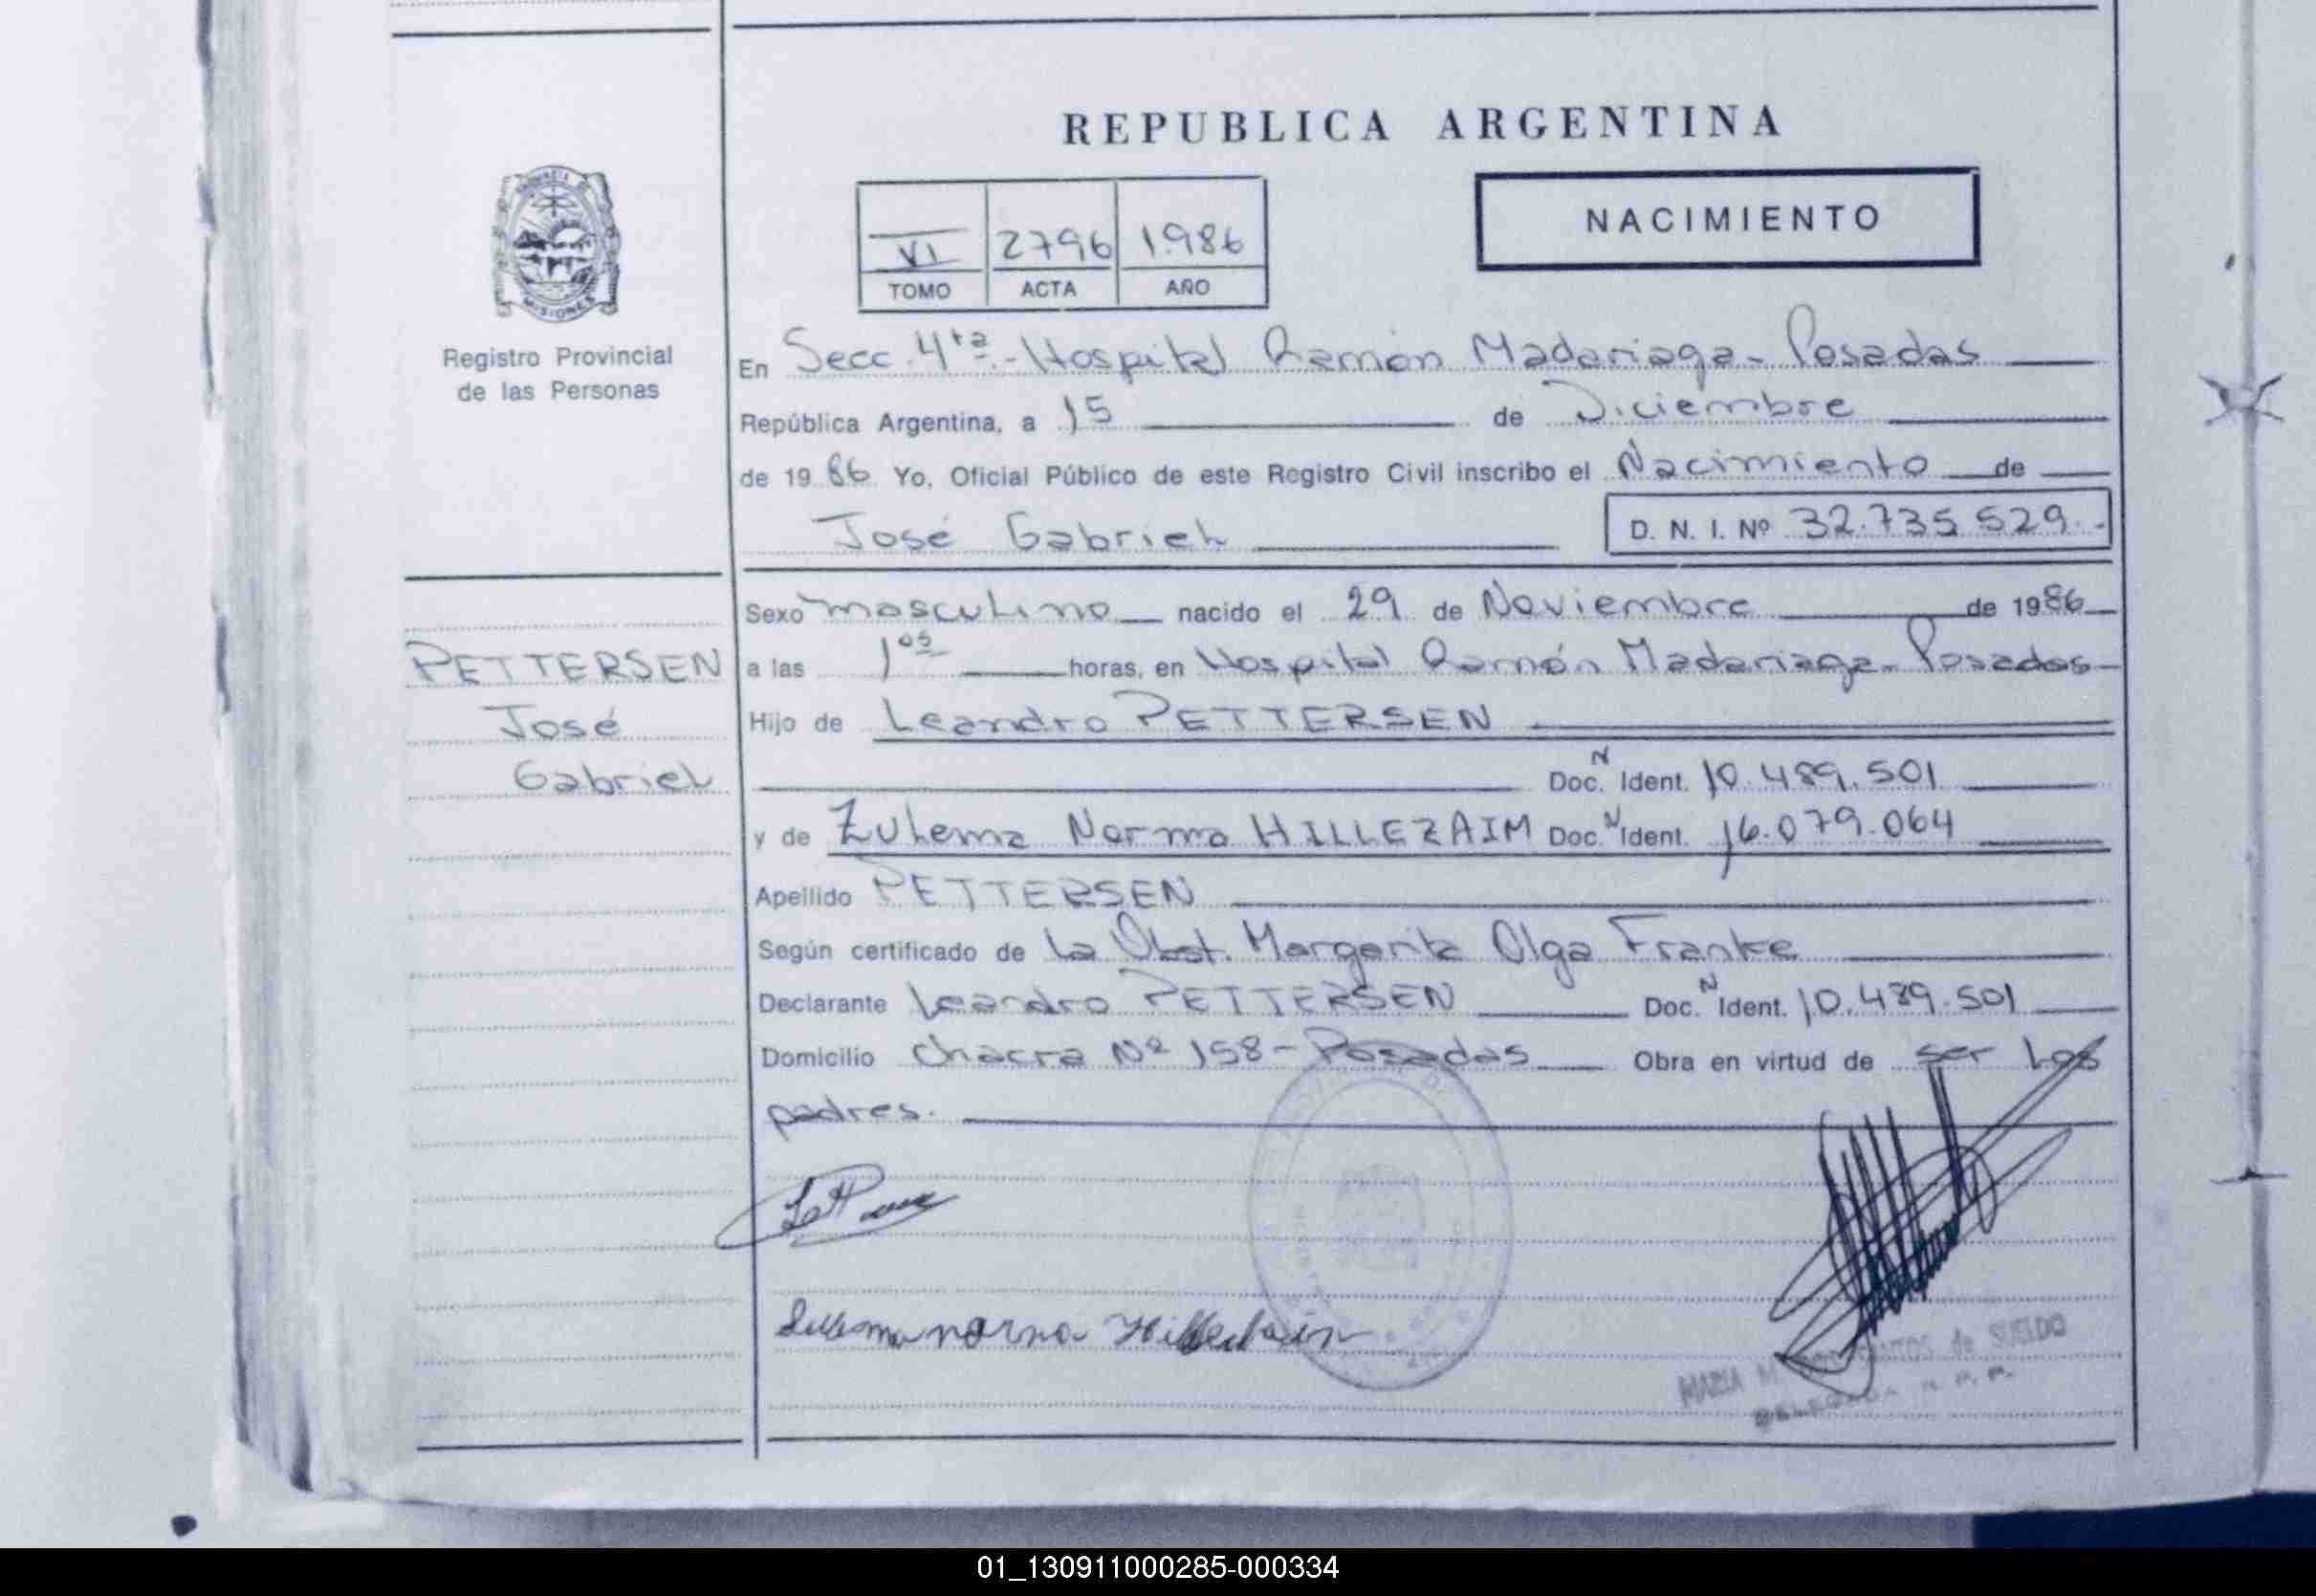 REPUBLICA ARGENTINA
PROVINCIA DE
MISIONES
Registro Provincial
de las Personas
VI 2796 1.986
TOMO ACTA AÑO
NACIMIENTO
En Secc. 4ta.- Hospital Ramón Madariaga- Posadas
República Argentina, a 15 de Diciembre
de 19 86 Yo, Oficial Público de este Registro Civil inscribo el Nacimiento de
José Gabriel D. N. I. Nº 32.735.529.-
PETTERSEN
José
Gabriel
Sexo masculino nacido el 29 de Noviembre de 1986
a las 1 05 horas, en Hospital Ramón Madariaga- Posadas
Hijo de Leandro PETTERSEN
Doc. N Ident. 10.489.501
y de Zulema Norma HILLEZAIM Doc. N Ident. 16.079.064
Apellido PETTERSEN
Según certificado de La Obst. Margarita Olga Franke
Declarante Leandro PETTERSEN Doc. N Ident. 10.489.501
Domicilio chacra Nº 158- Posadas Obra en virtud de ser los
padres.
norma
MARIA de SUELDO
DELEGADA
01_130911000285-000334